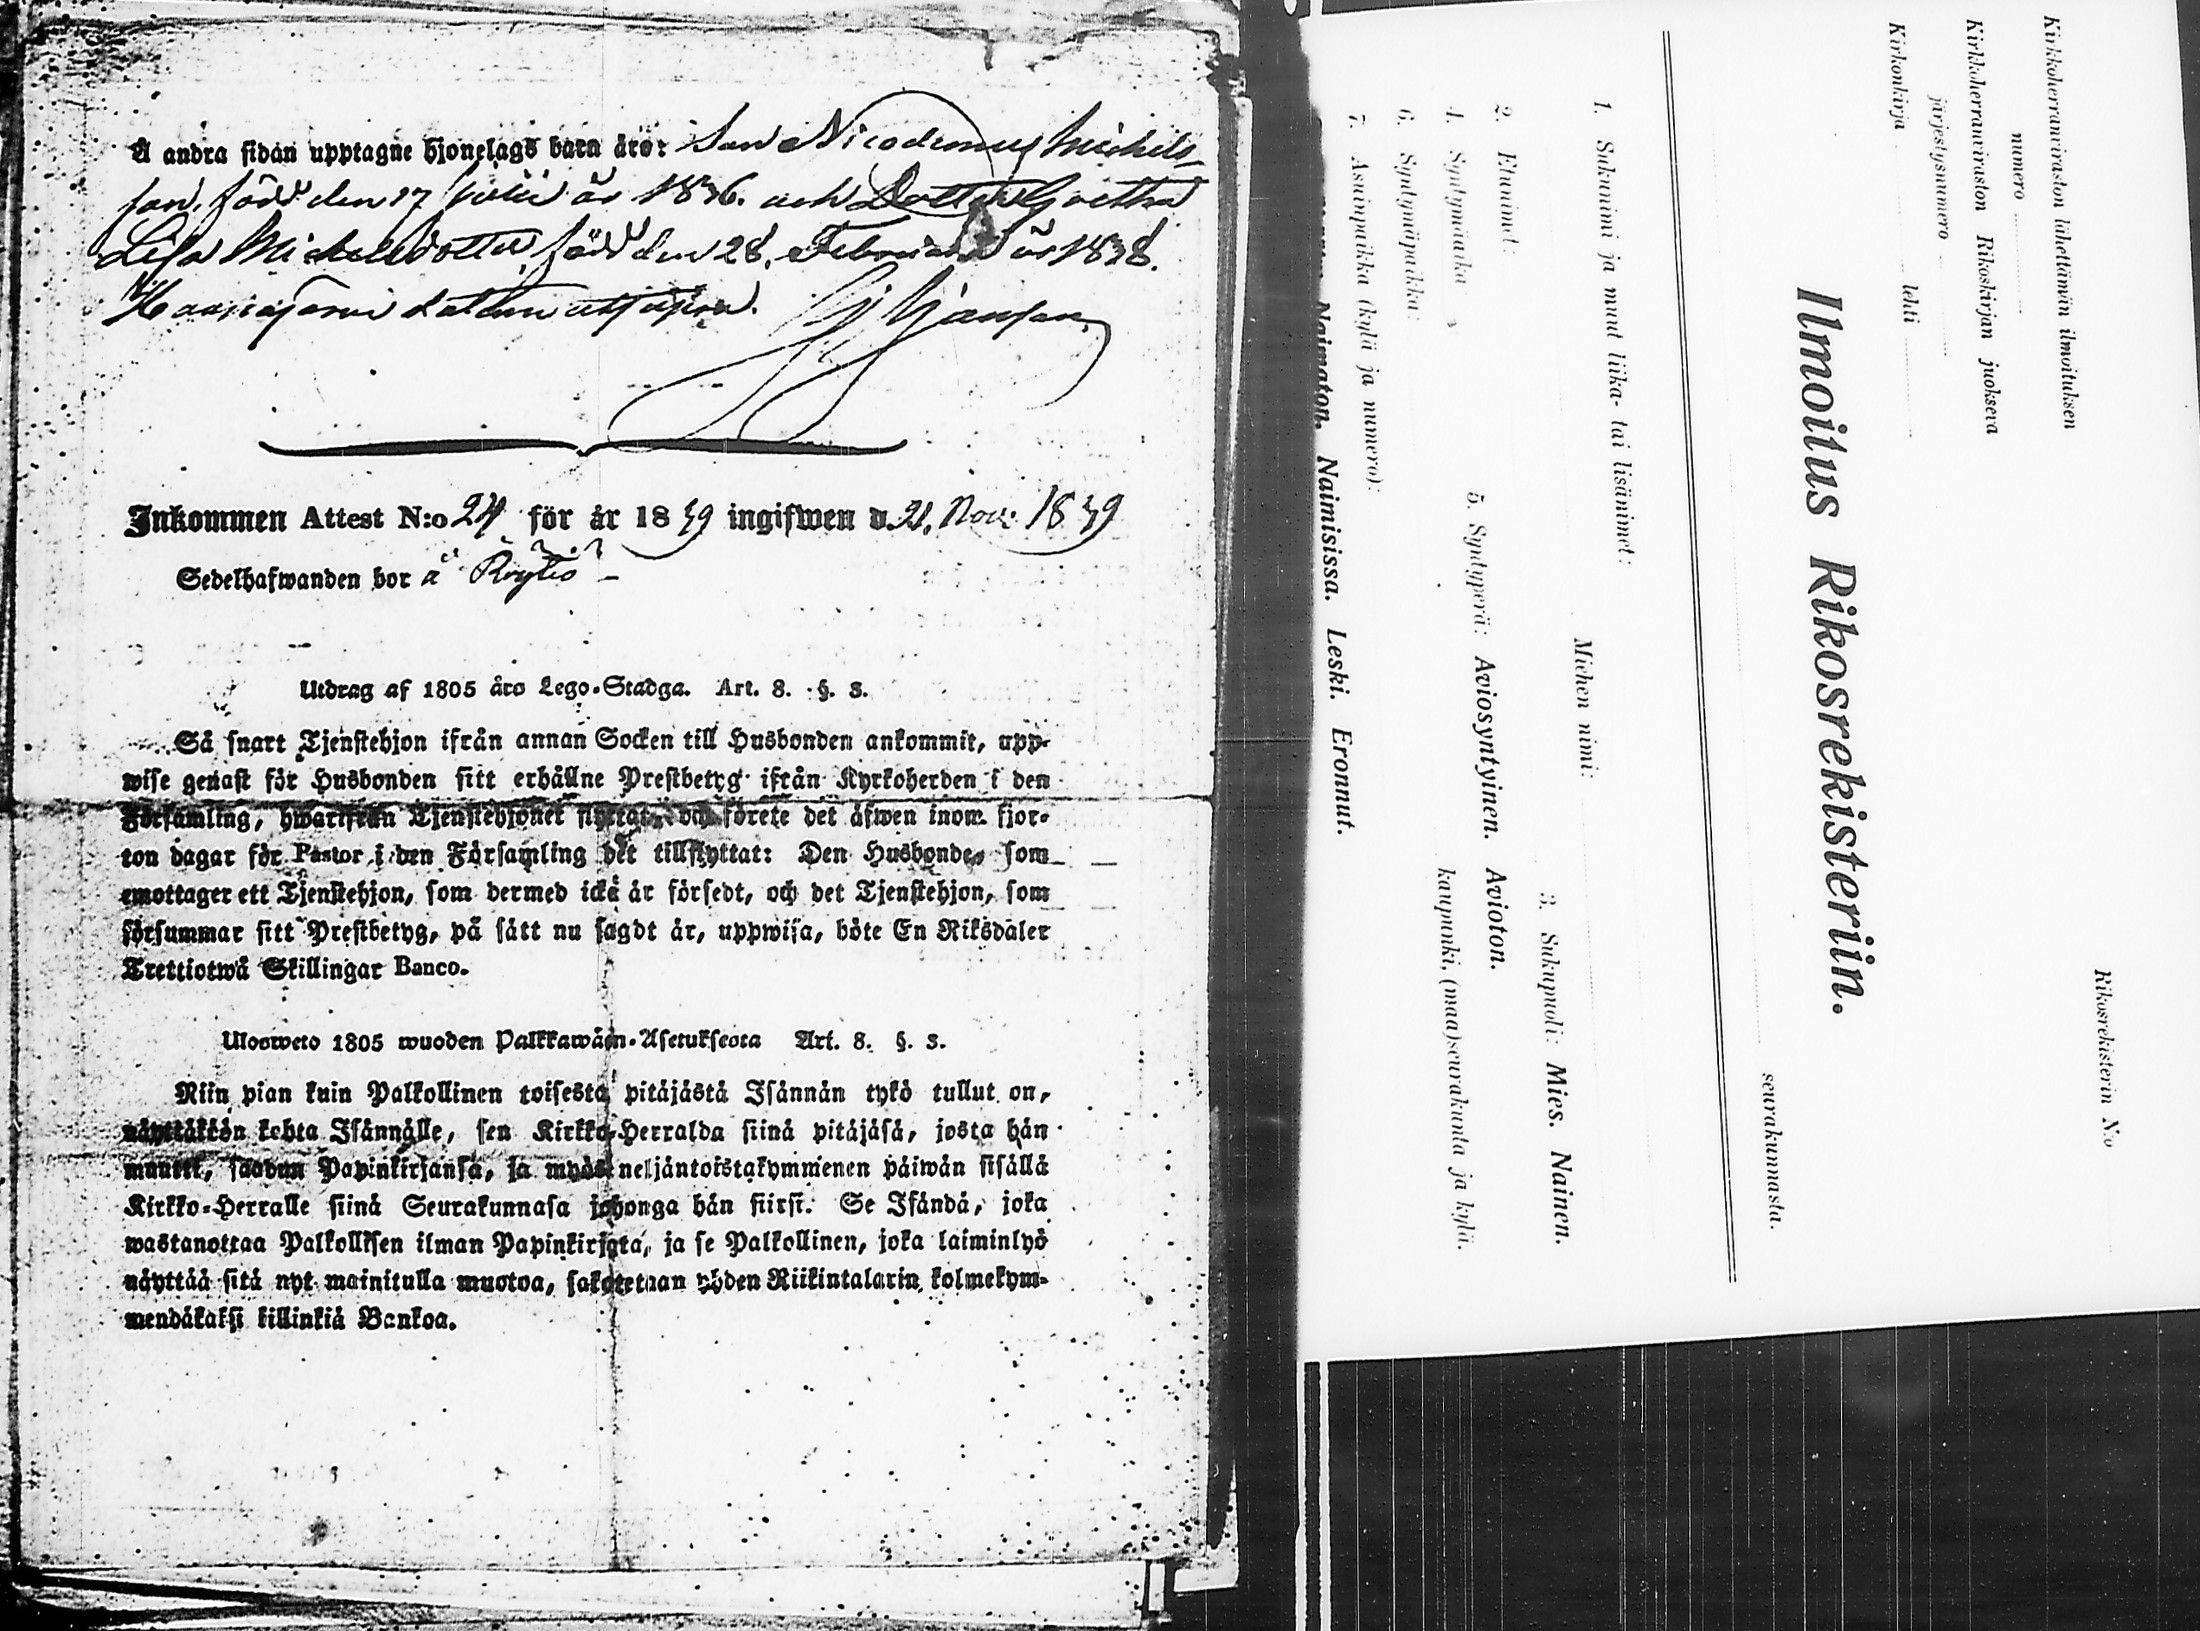 Å andra sidan upptagne hjonelags barn äro: Son Nicodemus Michels-
son, född den 17 Julii år 1836. och Dotter Greetha
Lisa Michelsdotter, född den 28. Februarii år 1838.
Inkommen Attest N:o 24 för år 1839 ingifwen d. 21. Nov: 1839
Sedelhafwanden bor å Röytiö
Utdrag af 1805 års Lego-Stadga. Art. 8. §. 3.
Så snart Tjenstehjon ifrån annan Socken till Husbonden ankommit, upp-
wise genast för Husbonden sitt erhållne Prestbetyg ifrån Kyrkoherden i den
Församling, hwarifrån Tjenstehjonet flyttat, och förete det äfwen inom fjor-
ton dagar för Pastor i den Församling det tillflyttat: Den Husbonde, som
emottager ett Tjenstehjon, som dermed icke är försedt, och det Tjenstehjon, som
försummar sitt Prestbetyg, på sätt nu sagdt är, uppwisa, böte En Riksdaler
Trettiotwå Skillingar Banco.
Ulosweto 1805 wuoden Palkkawäen-Asetuksesta Art. 8. §. 3.
Niin pian kuin Palkollinen toisesta pitäjästä Isännän tykö tullut on,
näyttäköön kohta Isännälle, sen Kirkko-Herralda siinä pitäjäsä, josta hän
muutti, saadun Papinkirjansa, ja myös neljäntoistakymmenen päiwän sisällä
Kirkko-Herralle siinä Seurakunnasa johonga hän siirsi. Se Isändä, joka
wastanottaa Palkollisen ilman Papinkirjata, ja se Palkollinen, joka laiminlyö
näyttää sitä nyt mainitulla muotoa, sakotetaan yhden Riikintalarin kolmekym-
mendäkaksi killinkiä Bankoa.
Rikosrekisterin N:o
Kirkkoherranviraston lähettämän ilmoituksen
numero
Kirkkoherranviraston Rikoskirjan juokseva
järjestysnumero
Kirkonkirja lehti
Ilmoitus Rikosrekisteriin.
seurakunnasta.
1. Sukunimi ja muut liika- tai lisänimet:
Miehen nimi:
2. Etunimet: 3. Sukupuoli: Mies. Nainen.
4. Syntymäaika 5. Syntyperä: Aviosyntyinen. Avioton.
6. Syntymäpaikka: kaupunki, (maa)seurakunta ja kylä.
7. Asuinpaikka (kylä ja numero):
Naimaton. Naimisissa. Leski. Eronnut.